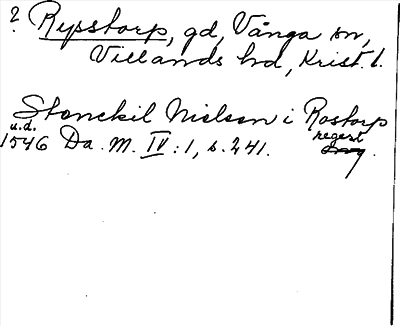 ? Rypstorp, gd, Vånga sn,
Villands hd, Krist. l.
Stenckil Nielsen i Rostorp
u.d. regest
1546 Da. M. IV: 1, s. 241.